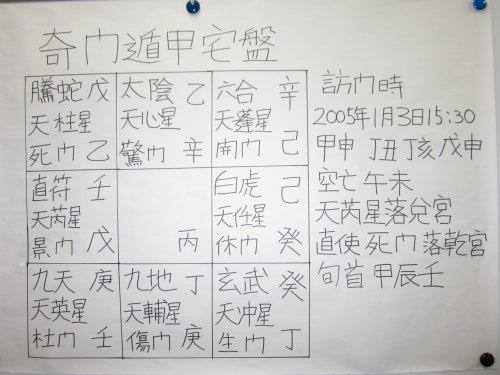 奇门遁甲宅盤
騰蛇 戊
天柱星
死门 乙
太陰 乙
天心星
驚门 辛
六合 辛
天蓬星
開门 己
直符 壬
天芮星
景门 戊
丙
白虎 己
天任星
休门 癸
九天 庚
天英星
杜门 壬
九地 丁
天輔星
傷门 庚
玄武 癸
天冲星
生门 丁
訪门時
2005年1月3日15:30
甲申 丁丑 丁亥 戊申
空亡 午未
天芮星落兌宮
直使 死门 落乾宮
旬首 甲辰壬